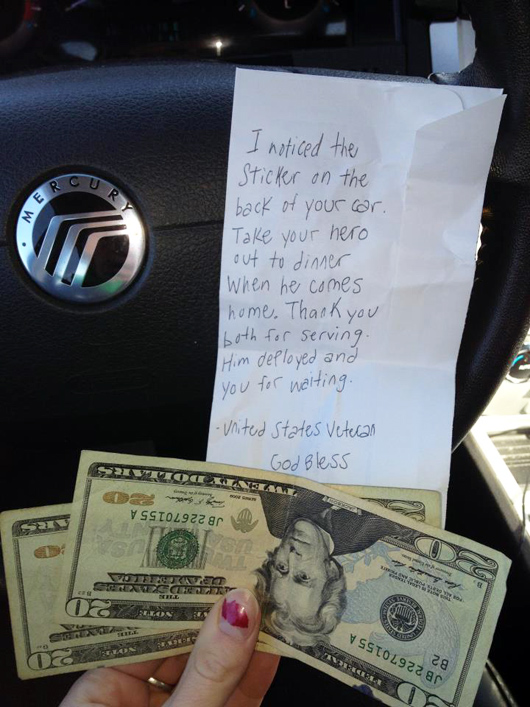 MERCURY
I noticed the
Sticker on the
back of your car.
Take your hero
out to dinner
When he comes
home. Thank you
both for serving.
Him deployed and
you for waiting.
-United States Veteran
God Bless
TWENTY DOLLARS
20
JB22670155A
THE
UNITED STATES
OF AMERICA
20
FEDERAL
JB 22670155 A
B2
20
20
20
20